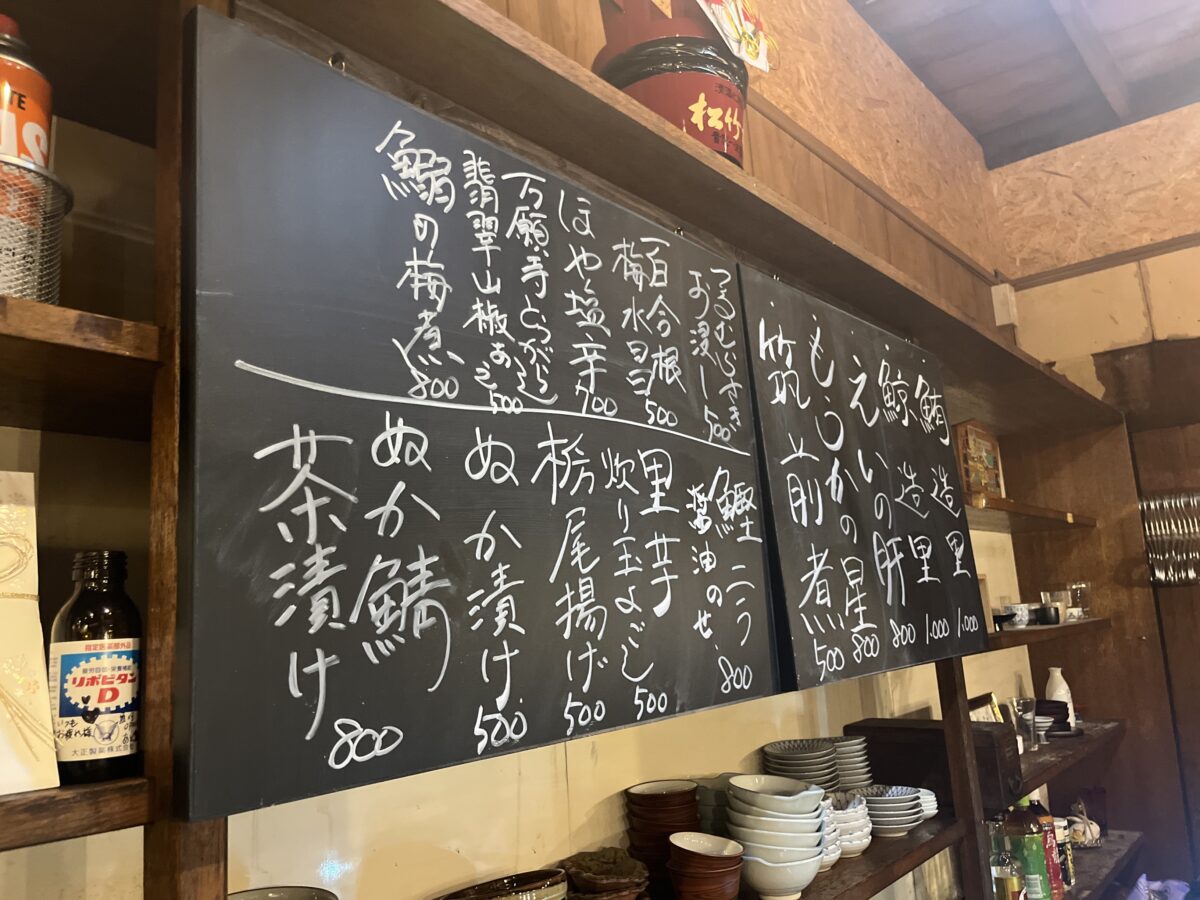 鮪 造里 1.000
鯨 造里 1.000
えいの肝 800
もうかの星 800
筑前煮 500
つるむらさき
お浸し 500
百合根
梅水晶 500
ほや塩辛 700
万願寺とうがらし
翡翠山椒あえ 500
鰯の梅煮 800
醤油のせ 800
里芋
炊り玉よごし 500
栃尾揚げ 500
ぬか漬け 500
ぬか鯖
茶漬け 800
松竹
指定医薬部外品
リポビタン
D
いつも
お疲れ様
大正製薬株式会社